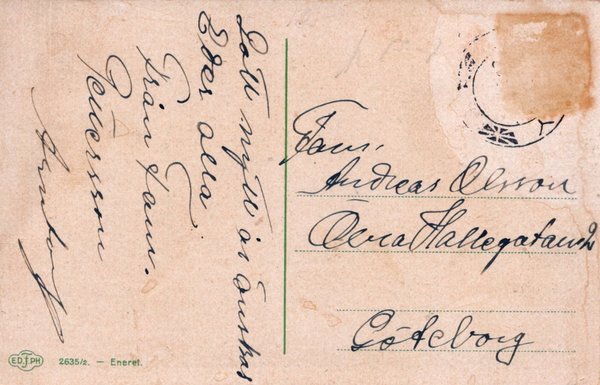 Gott nytt år önskas
Eder alla
Från Fam.
Fam.
Andreas Olsson
Övra Hallegatan 2
Göteborg
EDJPH 2635/2. — Eneret.